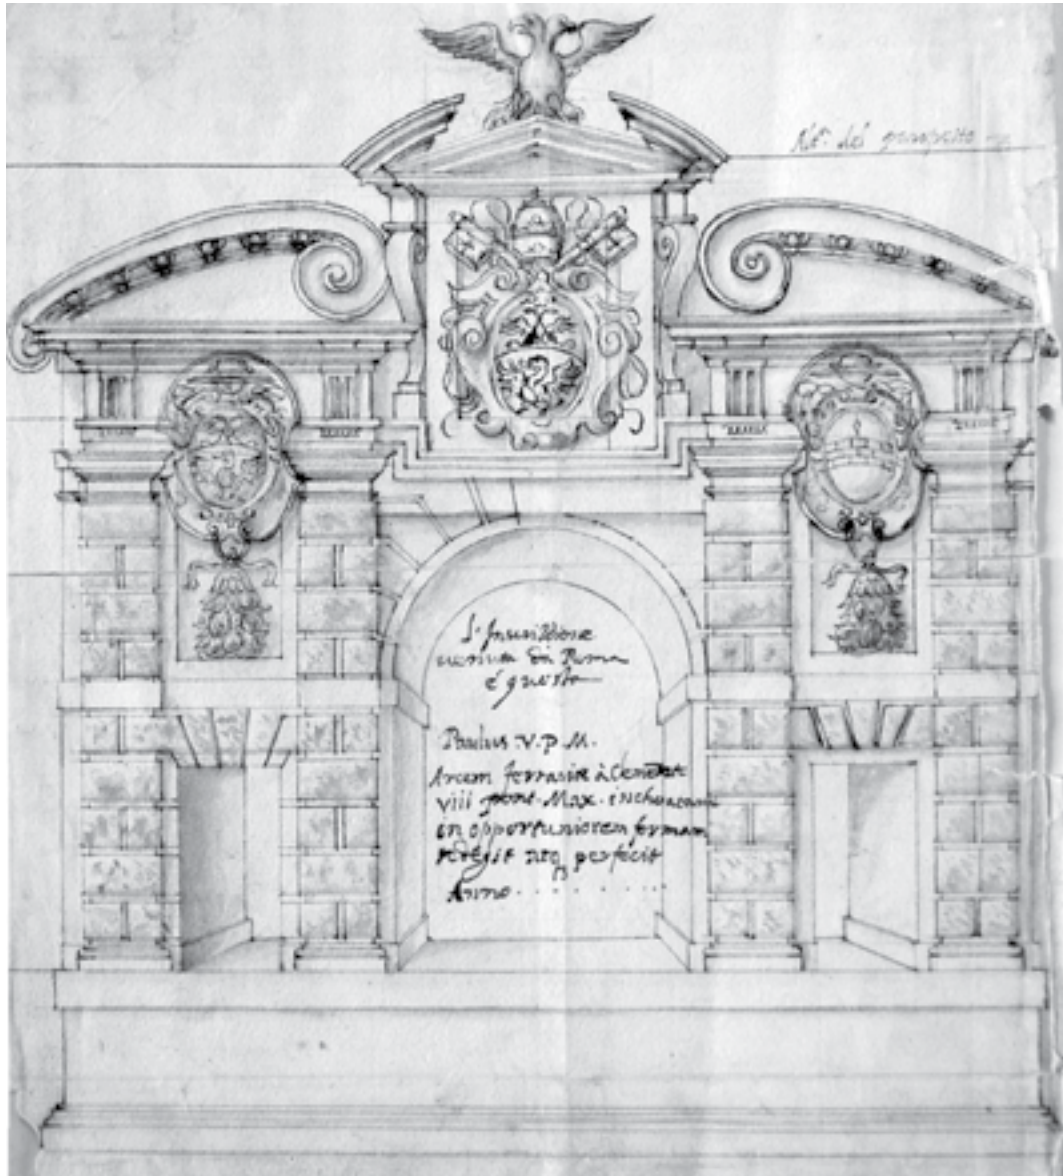 del parapetto
L'Inscrittione
uenuta da Roma
è questa
Paulus .V. P. M.
Arcem ferrariæ à Clemente
viii pont. Max. inchoatam
in opportuniorem formam
redegit atq perfecit
Anno . . . . . . . . .